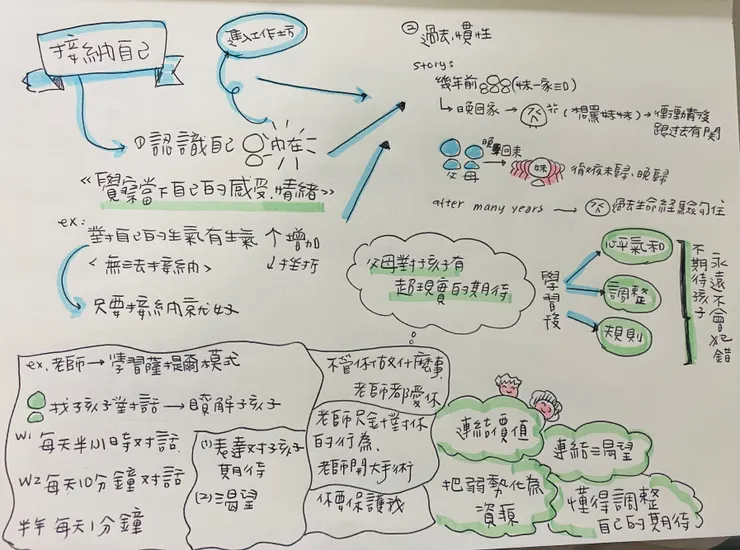 接納自己
進入工作坊
① 認識自己 內在
《覺察當下自己的感受.情緒》
ex:
對自己的生氣有生氣 ↑增加
<無法去接納> ↓挫折
只要接納就好
② 過去.慣性
story:
幾年前 (妹一家三口)
↳ 晚回家 → (想罵妹妹) → 衝動情緒
跟過去有關
父母 晚回來 → 妹 徹夜未歸、晚歸
after many years → 過去生命經驗勾住
父母對孩子有
超現實的期待
學習後
心平氣和
調整
規則
不期待孩子
永遠不會犯錯
ex. 老師 → 學習薩提爾模式
找孩子對話 → 瞭解孩子
W1 每天半小時對話
W2 每天10分鐘對話
半年 每天1分鐘
(1) 表達對孩子
期待
(2) 渴望
不管你做什麼事,
老師都愛你
老師只針對你
的行為.
老師開大手術
你要保護我
連結價值
連結渴望
把弱勢化為
資源
懂得調整
自己的期待